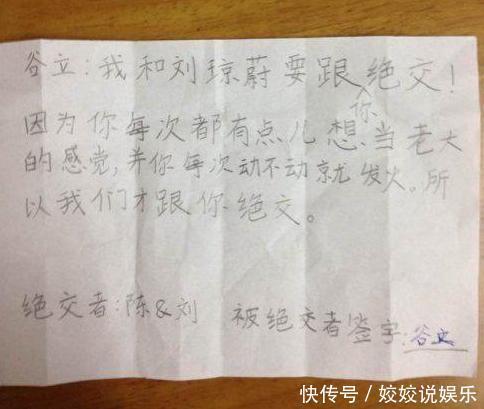 谷立：我和刘琼蔚要跟你绝交！
因为你每次都有点儿想当老大
的感觉，并你每次动不动就发火。所
以我们才跟你绝交。
绝交者：陈&刘 被绝交者签字：谷立
快传号／姣姣说娱乐